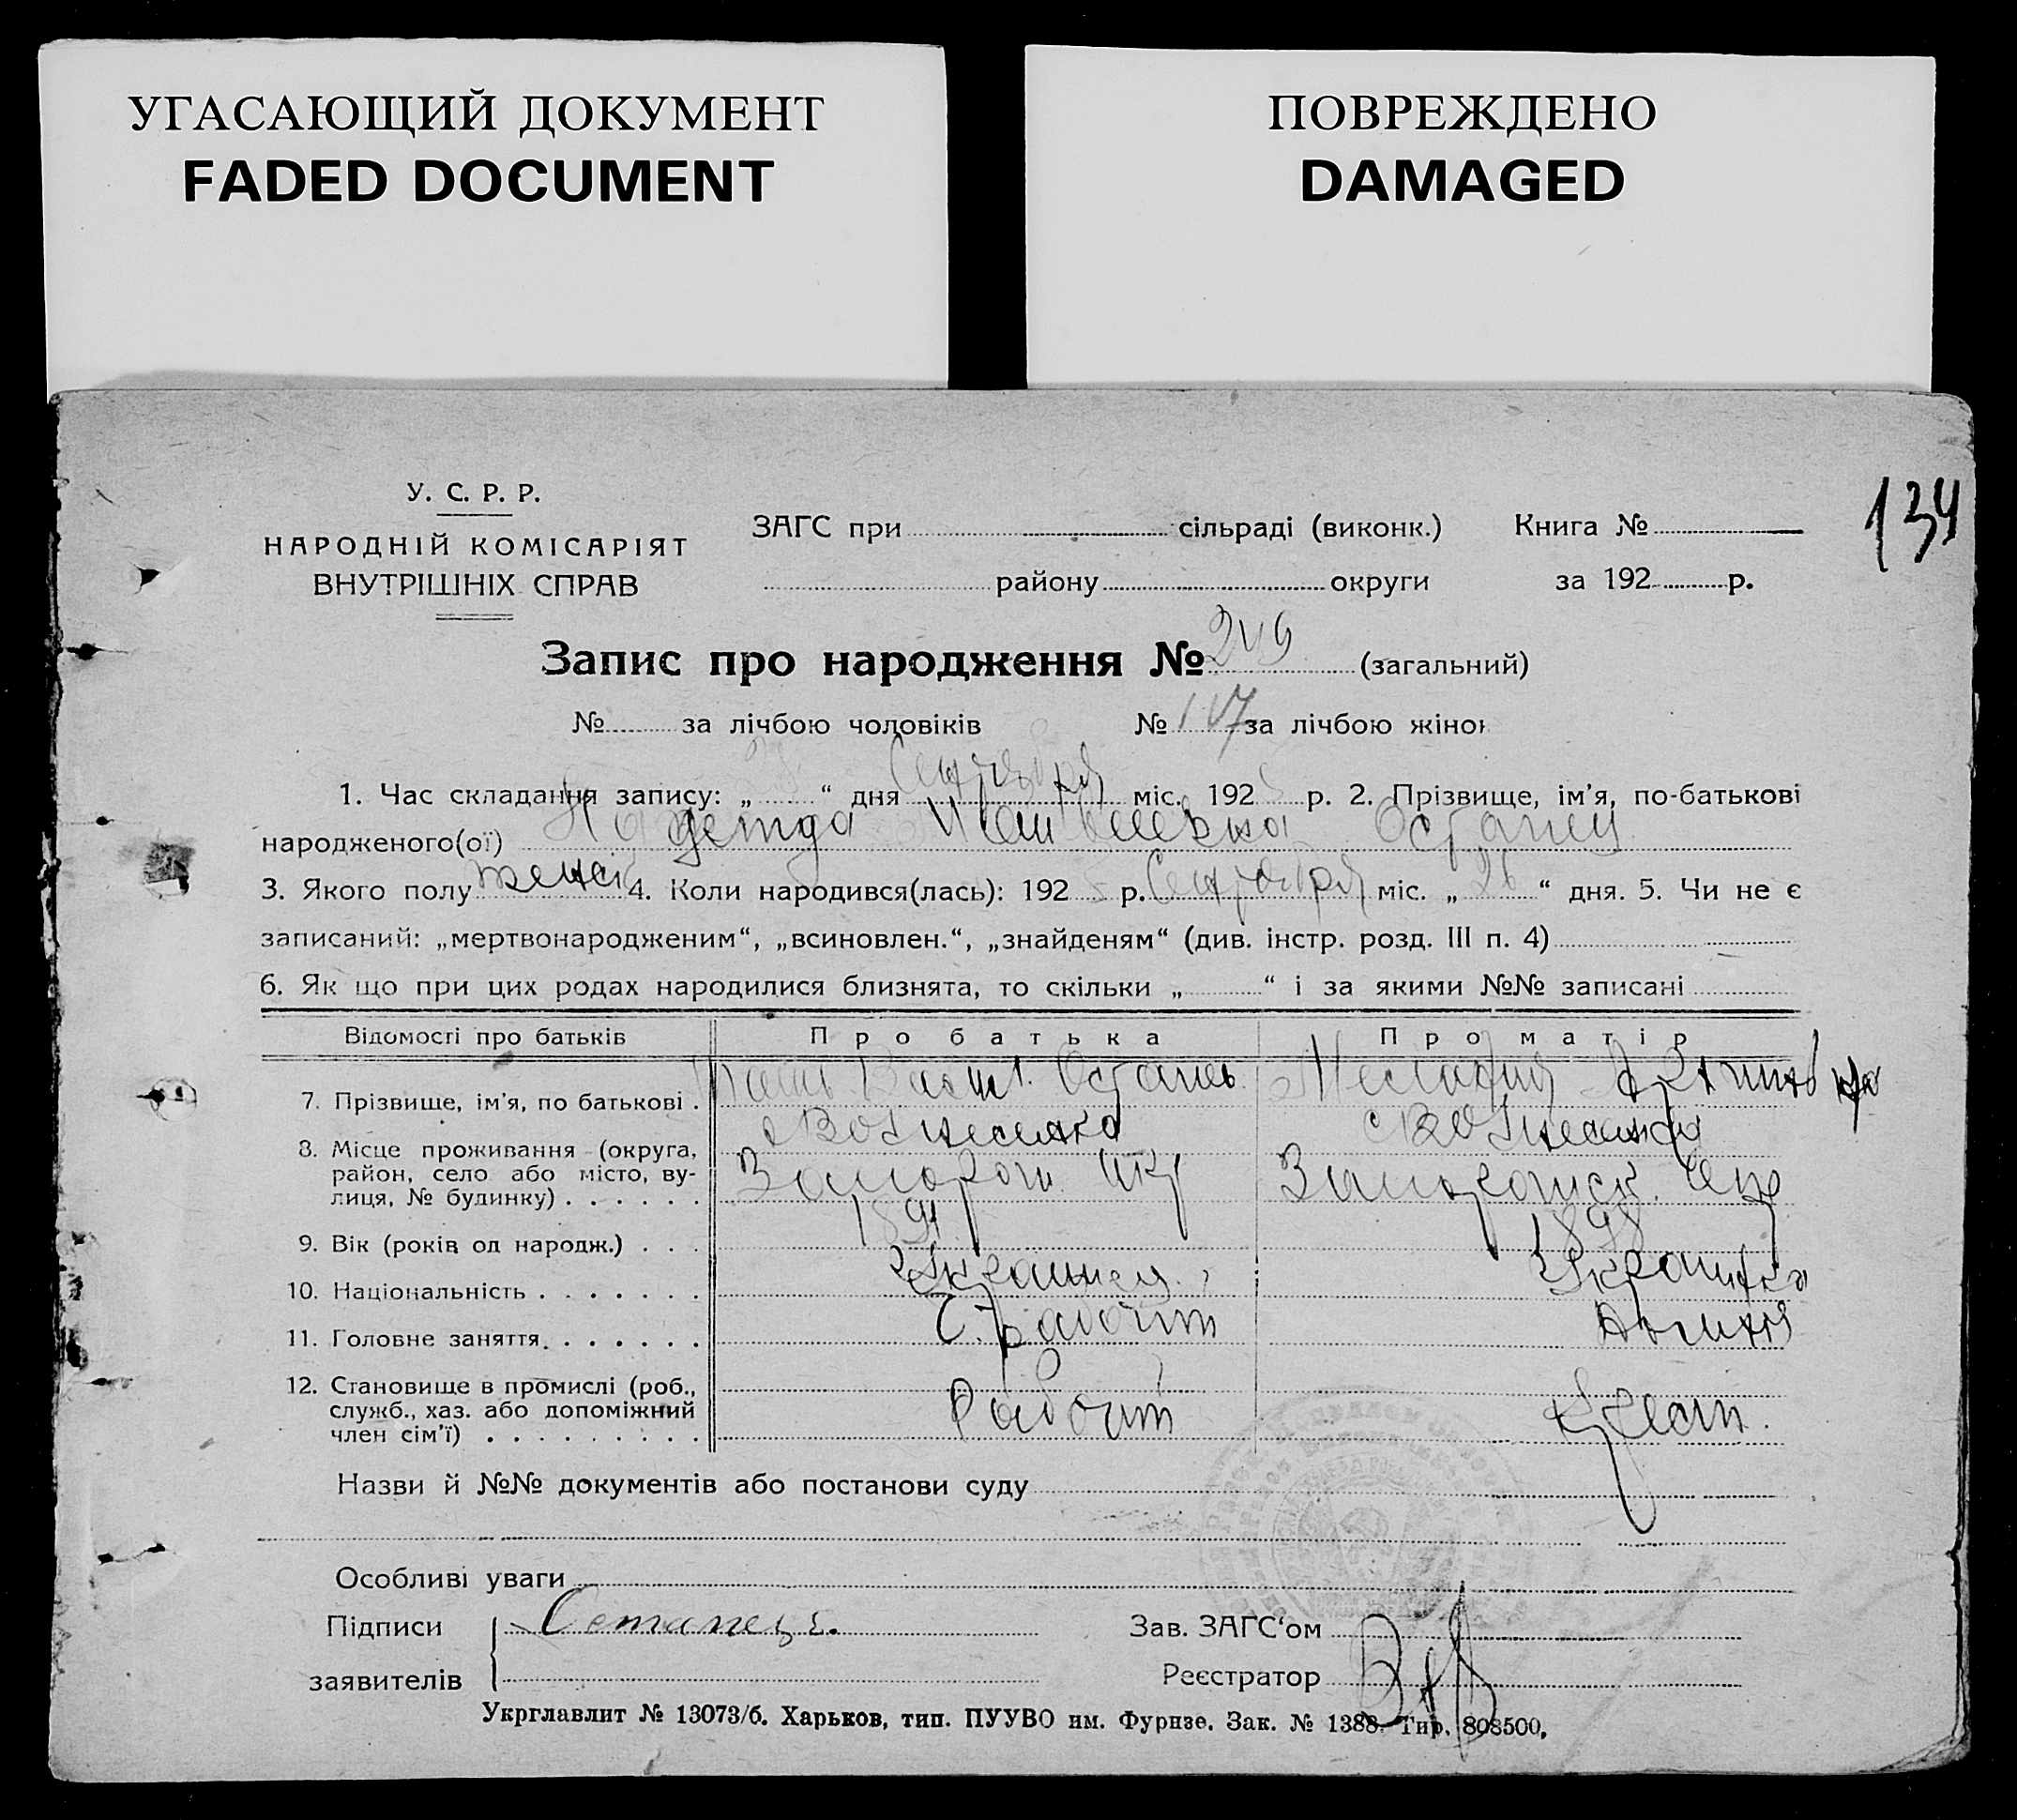 УГАСАЮЩИЙ ДОКУМЕНТ
FADED DOCUMENT
ПОВРЕЖДЕНО
DAMAGED
134
У. С. Р. Р.
НАРОДНІЙ КОМІСАРІЯТ
ВНУТРІШНІХ СПРАВ
ЗАГС при сільраді (виконк.)
району округи
Книга №
за 192 р.
Запис про народження № 249 (загальний)
№ за лічбою чоловіків № 117 за лічбою жінок
1. Час складання запису: „ “ дня Сентября міс. 192 р. 2. Прізвище, ім’я, по-батькові
народженого(ої) Надежда Остапец
3. Якого полу женск 4. Коли народився(лась): 192 5 р. Сентября міс. „ 26 “ дня. 5. Чи не є
записаний: „мертвонародженим“, „всиновлен.“, „знайденям“ (див. інстр. розд. III п. 4)
6. Як що при цих родах народилися близнята, то скільки „ “ і за якими №№ записані
Відомості про батьків Про батька Про матір
7. Прізвище, ім’я, по батькові . Остапець
8. Місце проживання (округа, район, село або місто, вулиця, № будинку) . . . . . . с Вознесенка Запорож. Окр с Вознесенка Запорожск. Окр
9. Вік (років од народж.) . . . 1891 1898
10. Національність . . . . . . . Украинец Украинка
11. Головне заняття . . . . . . Рабочий
12. Становище в промислі (роб., служб., хаз. або допоміжний член сім’ї) . . . . . . . . . Рабочий
Назви й №№ документів або постанови суду
Особливі уваги
Підписи
заявителів
Остапець
Зав. ЗАГС‘ом
Реєстратор
Укрглавлит № 13073/б. Харьков, тип. ПУУВО им. Фурнзе. Зак. № 1388. Тир. 808500,